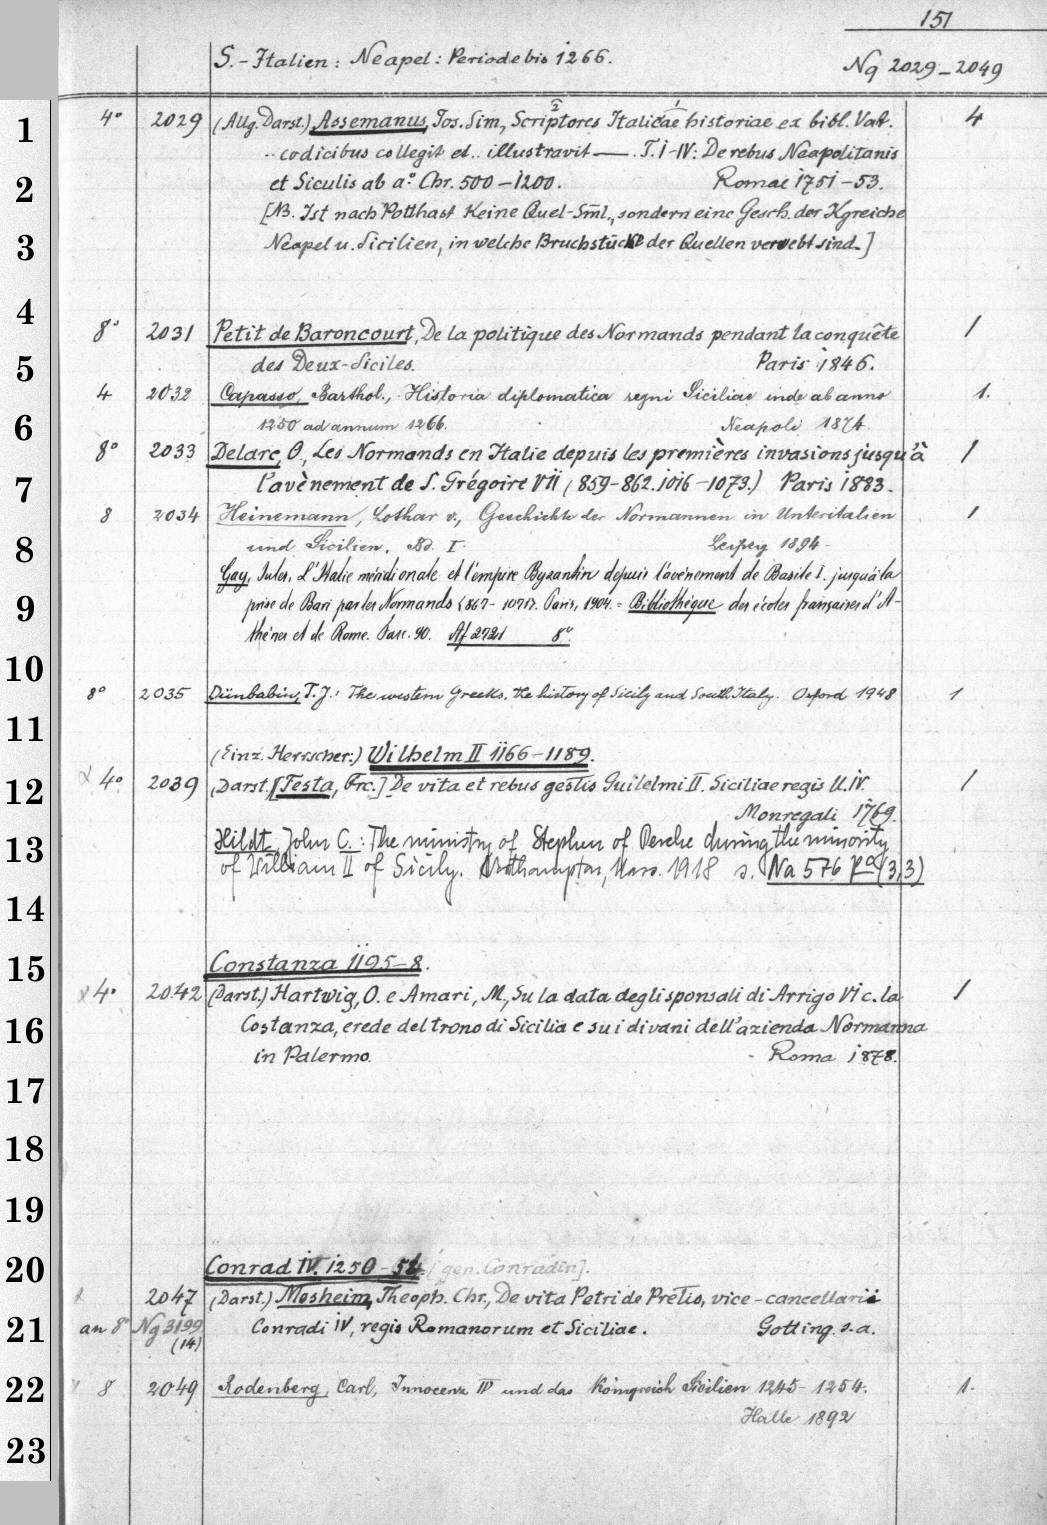 151
S.-Italien: Neapel: Periode bis 1266. Nq 2029-2049
1 4° 2029 (Allg. Darst.) Assemanus, Jos. Sim., Scriptores Italicae historiae ex bibl. Vat. 4
.. codicibus collegit et .. illustravit — . T. I-IV: De rebus Neapolitanis
2 et Siculis ab a.° Chr. 500-1200. Romae 1751-53.
[NB. Ist nach Potthast Keine Quel-Sml., sondern eine Gesch. der Kgreiche
3 Neapel u. Sicilien, in welche Bruchstücke der Quellen verwebt sind.]
4
8° 2031 Petit de Baroncourt, De la politique des Normands pendant la conquête 1
5 des Deux-Siciles. Paris 1846.
4 2032 Capasso, Barthol., Historia diplomatica regni Siciliae inde ab anno 1.
6 1250 ad annum 1266. Neapoli 1874.
8° 2033 Delarc, O., Les Normands en Italie depuis les premières invasions jusqu'à 1
7 l'avènement de S. Grégoire VII (859-862. 1016-1073.) Paris 1883.
8 2034 Heinemann, Lothar v., Geschichte der Normannen in Unteritalien 1
8 und Sicilien. Bd. I. Leipzig 1894
Gay, Jules, L'Italie méridionale et l'empire Byzantin depuis l'avènement de Basile I. jusqu'à la
9 prise de Bari par les Normands (867-1071). Paris, 1904. = Bibliothèque des écoles françaises d'A-
thènes et de Rome. Fasc. 90. Af 2721 8°
10
8° 2035 Dünbabin, T. J.: The western Greeks. the history of Sicily and South. Italy. Oxford 1948 1
11
(Einz. Herrscher:) Wilhelm II 1166-1189.
12 4° 2039 (Darst.) [Testa, Frc.] De vita et rebus gestis Guilelmi II. Siciliae regis ll. IV. 1
Monregali 1769.
13 Hildt, John C.: The ministry of Stephen of Perche during the minority
of William II of Sicily. Northampton, Mass. 1918 s. Na 576 Ka (3,3)
14
15 Constanza 1195-8.
4° 2042 (Darst.) Hartwig, O. e Amari, M., Su la data degli sponsali di Arrigo VI c. la 1
16 Costanza, erede del trono di Sicilia e su i divani dell'azienda Normanna
in Palermo. Roma 1878.
17
18
19
20 Conrad IV. 1250-54. [gen. Conradin].
2047 (Darst.) Mosheim, Theoph. Chr., De vita Petri de Pretio, vice-cancellarii
21 an 8° Ng 3199 Conradi IV, regis Romanorum et Siciliae. Gotting. s.a.
(14)
22 8 2049 Rodenberg, Carl, Innocenz IV und das Königreich Sicilien 1245-1254. 1.
Halle 1892
23